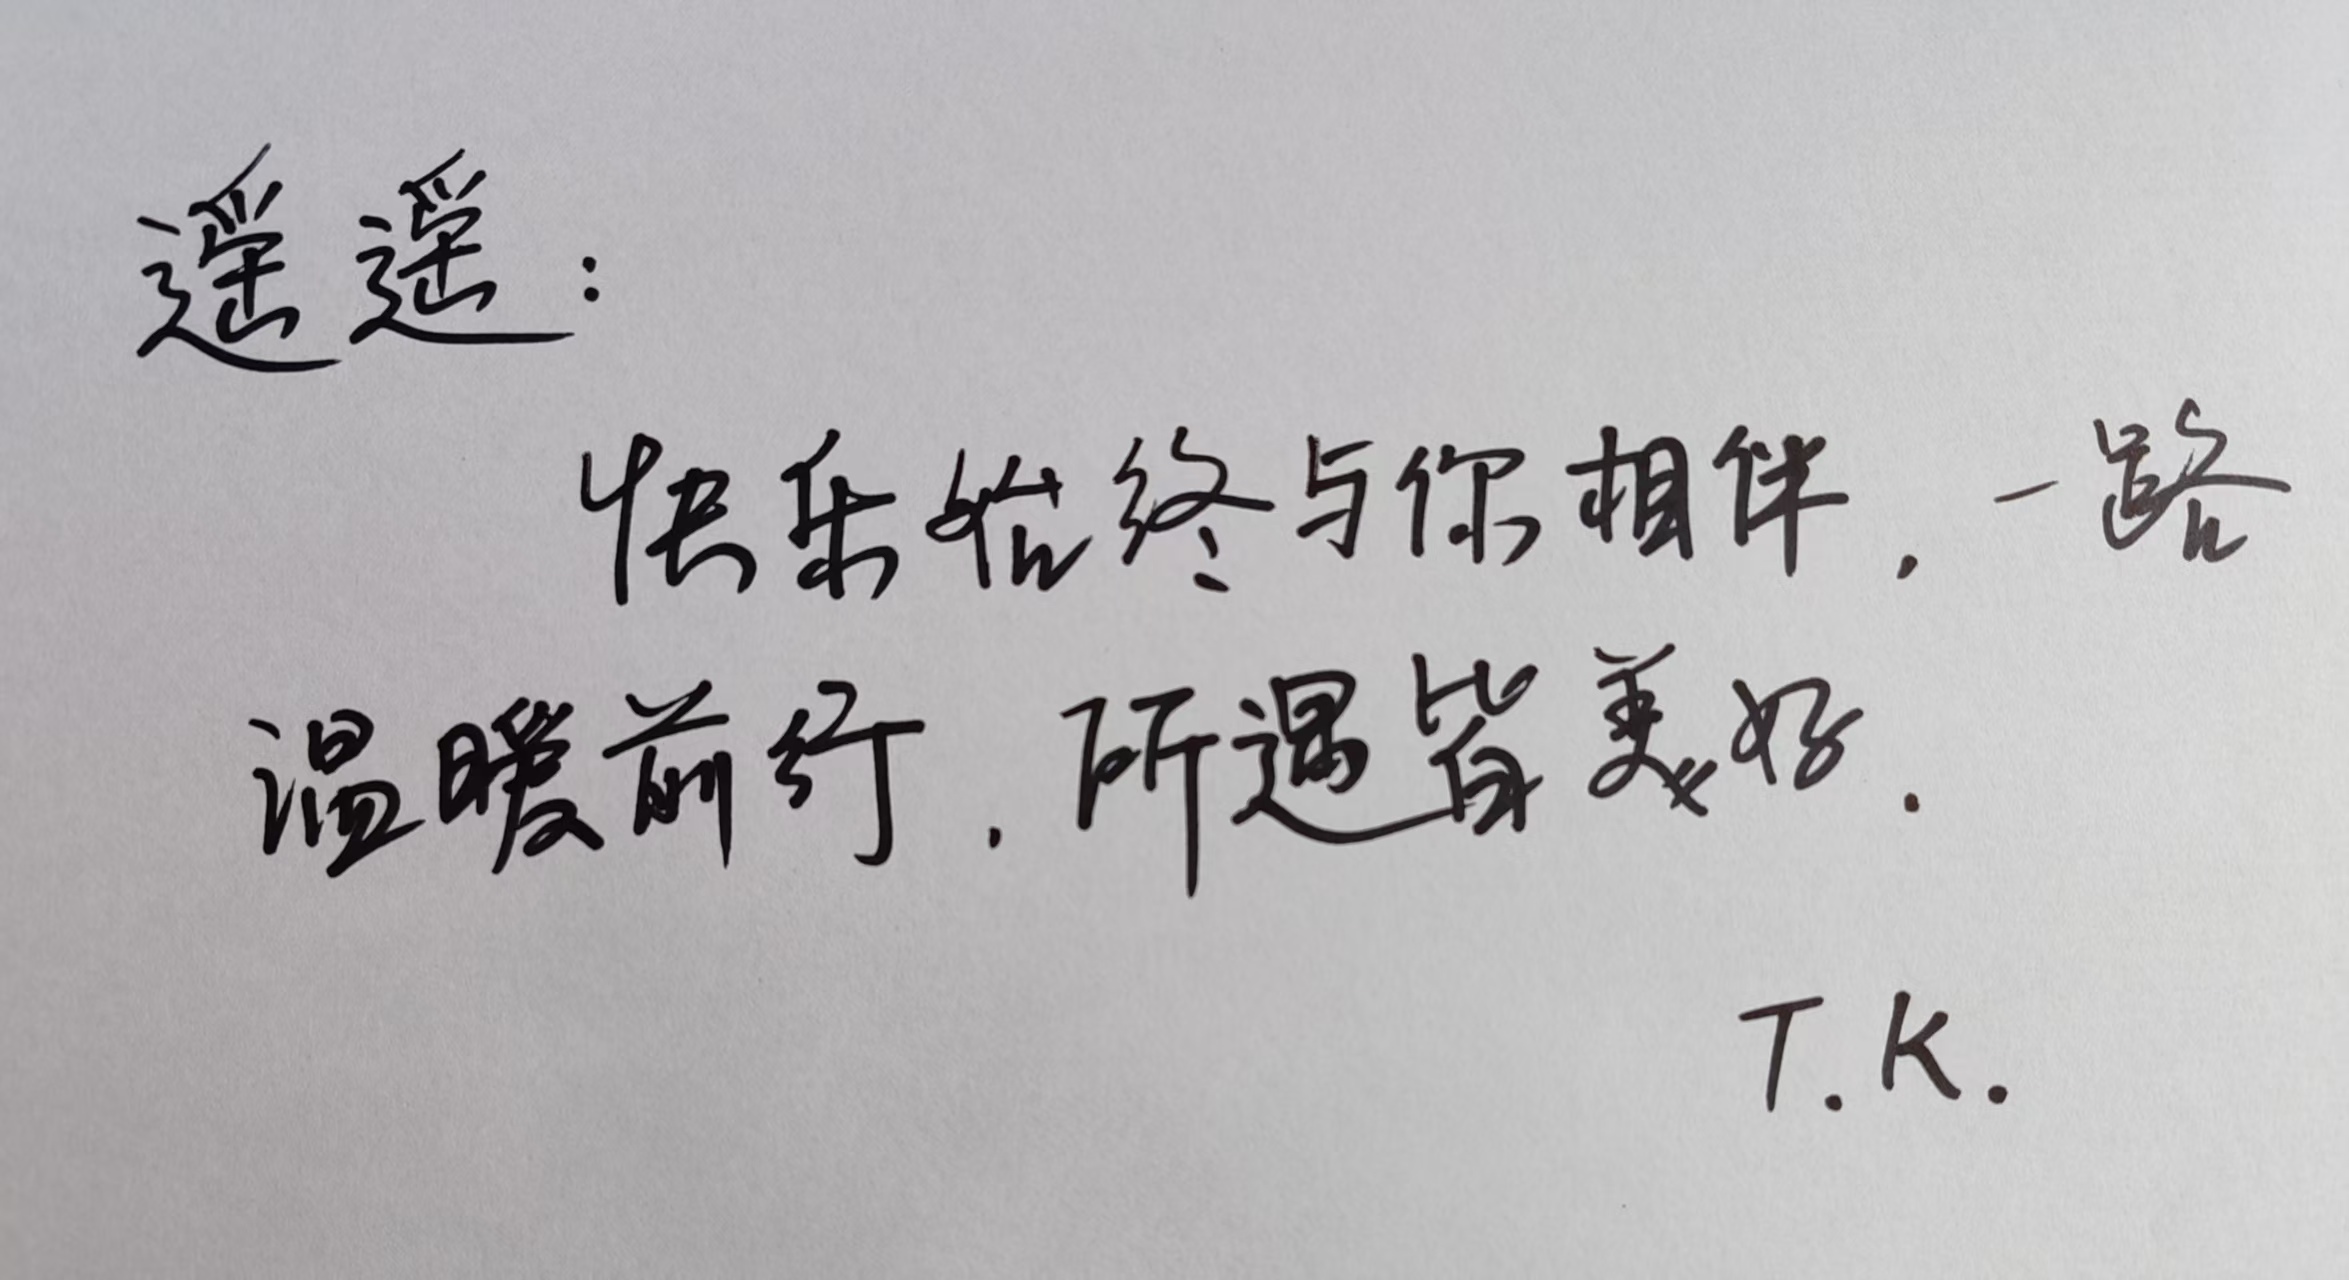 遥遥：
快乐始终与你相伴.一路
温暖前行.所遇皆美好.
T.K.